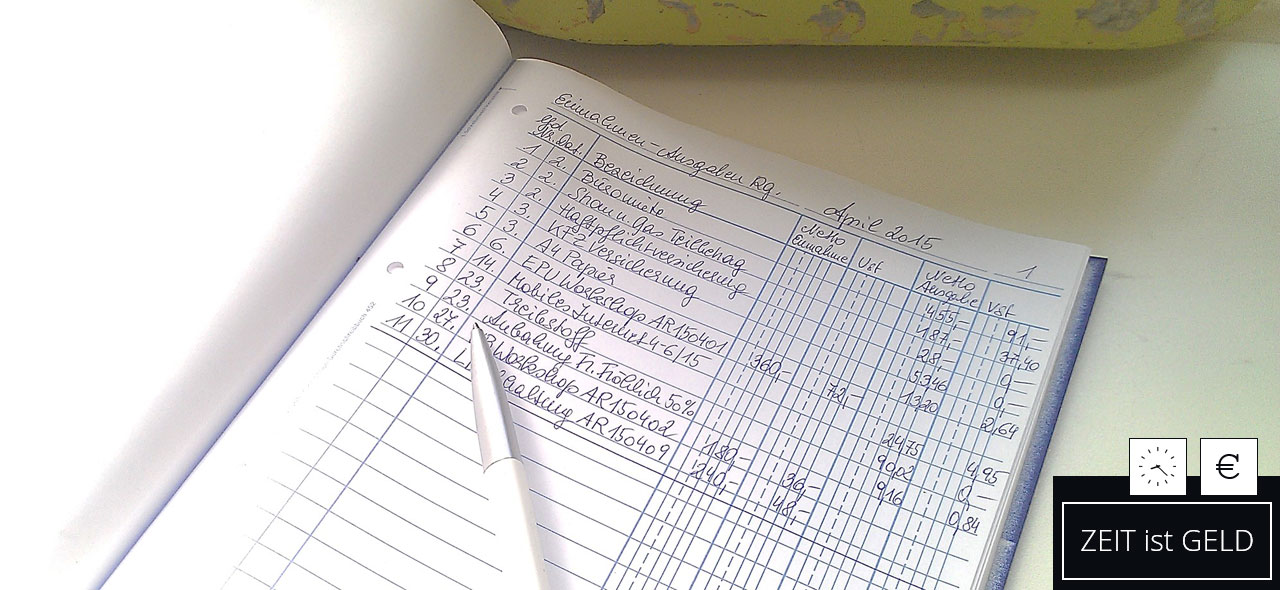 Einnahmen-Ausgaben Rg. April 2015 1
lfd Nr. Dat. Bezeichnung Netto Einnahme Ust Netto Ausgabe Vst
1 2. Büromiete 455,- 91,-
2 2. Strom u. Gas Teilbetrag 187,- 37,40
3 2. Haftpflichtversicherung 28,- 0,-
4 3. KFZ Versicherung 53,46 0,-
5 3. A4 Papier 13,20 2,64
6 6. EPU Workshop AR150401 360,- 72,-
7 14. Mobiles Internet 4-6/15 24,75 4,95
8 23. Treibstoff 90,02 0,-
9 23. Fr. Fröhlich 50% 9,16 0,84
10 27. Workshop AR150402 180,- 36,-
11 30. AR150409 1240,- 48,-
ZEIT ist GELD
€